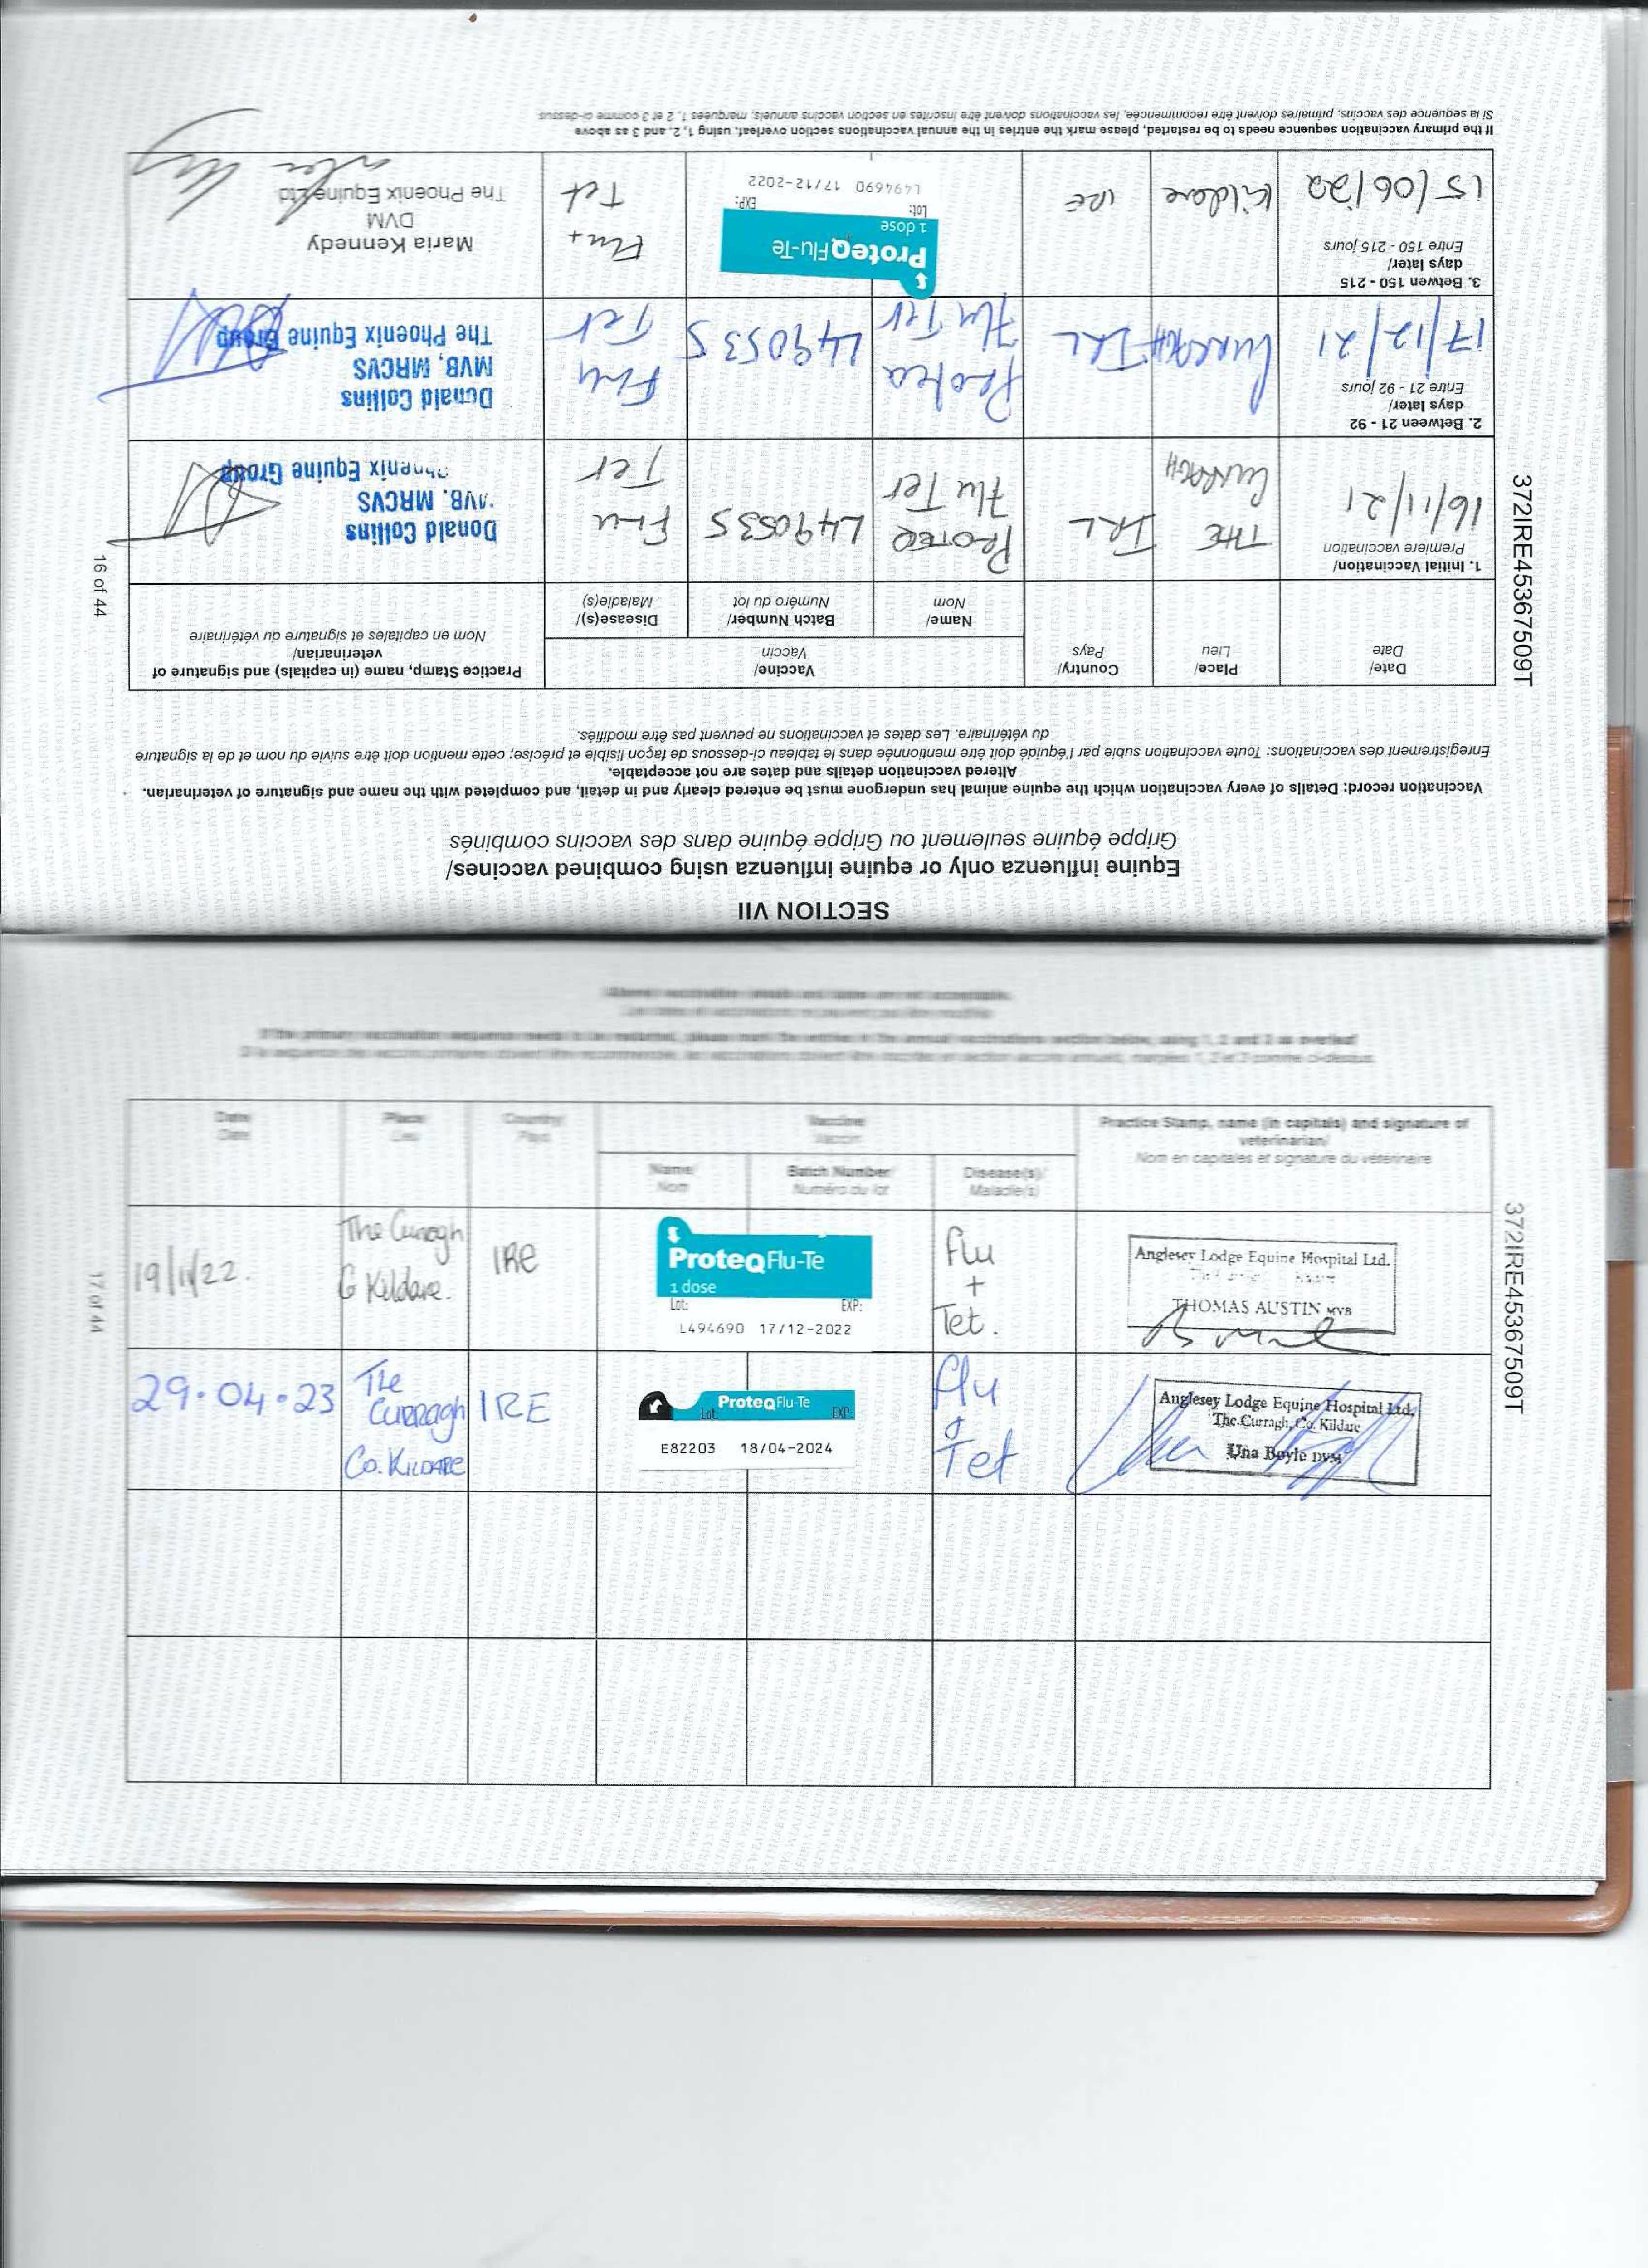 SECTION VII
Equine influenza only or equine influenza using combined vaccines/
Grippe équine seulement ou Grippe équine dans des vaccins combinés
Vaccination record: Details of every vaccination which the equine animal has undergone must be entered clearly and in detail, and completed with the name and signature of veterinarian.
Altered vaccination details and dates are not acceptable.
Enregistrement des vaccinations: Toute vaccination subie par l'équidé doit être mentionnée dans le tableau ci-dessous de façon lisible et précise; cette mention doit être suivie du nom et de la signature
du vétérinaire. Les dates et vaccinations ne peuvent pas être modifiés.
Date/
Date
Place/
Lieu
Country/
Pays
Vaccine/
Vaccin
Name/
Nom
Batch Number/
Numéro du lot
Disease(s)/
Maladie(s)
Practice Stamp, name (in capitals) and signature of
veterinarian/
Nom en capitales et signature du vétérinaire
1. Initial Vaccination/
Première vaccination
16/11/21
THE
CURRAGH
IRL
PROTEQ
Flu Tet
L490535
Flu
Tet
Donald Collins
MVB. MRCVS
Phoenix Equine Group
2. Between 21 - 92
days later/
Entre 21 - 92 jours
17/12/21
CURRAGH
IRL
Proteq
Flu Tet
L490535
Flu
Tet
Donald Collins
MVB, MRCVS
The Phoenix Equine Group
3. Betwen 150 - 215
days later/
Entre 150 - 215 jours
15/06/22
Kildare
IRE
ProteqFlu-Te
1 dose
Lot: EXP:
L494690 17/12-2022
Flu+
Tet
Maria Kennedy
DVM
The Phoenix Equine Ltd
If the primary vaccination sequence needs to be restarted, please mark the entries in the annual vaccinations section overleaf, using 1, 2, and 3 as above
Si la séquence des vaccins, primaires doivent être recommencée, les vaccinations doivent être inscrites en section vaccins annuels, marquées 1, 2 et 3 comme ci-dessus
16 of 44
372IRE45367509T
Altered vaccination details and dates are not acceptable.
If the primary vaccination sequence needs to be restarted, please mark the entries in the annual vaccinations section below, using 1, 2 and 3 as overleaf
Date/
Date
Place/
Lieu
Country/
Pays
Vaccine/
Vaccin
Name/
Nom
Batch Number/
Numéro du lot
Disease(s)/
Maladie(s)
Practice Stamp, name (in capitals) and signature of
veterinarian/
Nom en capitales et signature du vétérinaire
19/11/22.
The Curragh
Co Kildare.
IRE
ProteqFlu-Te
1 dose
Lot: EXP:
L494690 17/12-2022
Flu
+
Tet.
Anglesey Lodge Equine Hospital Ltd.
THOMAS AUSTIN MVB
29.04.23
The
Curragh
Co. KILDARE
IRE
ProteqFlu-Te
Lot: EXP:
E82203 18/04-2024
Flu
&
Tet
Anglesey Lodge Equine Hospital Ltd.
The Curragh, Co. Kildare
Una Boyle DVM
17 of 44
372IRE45367509T